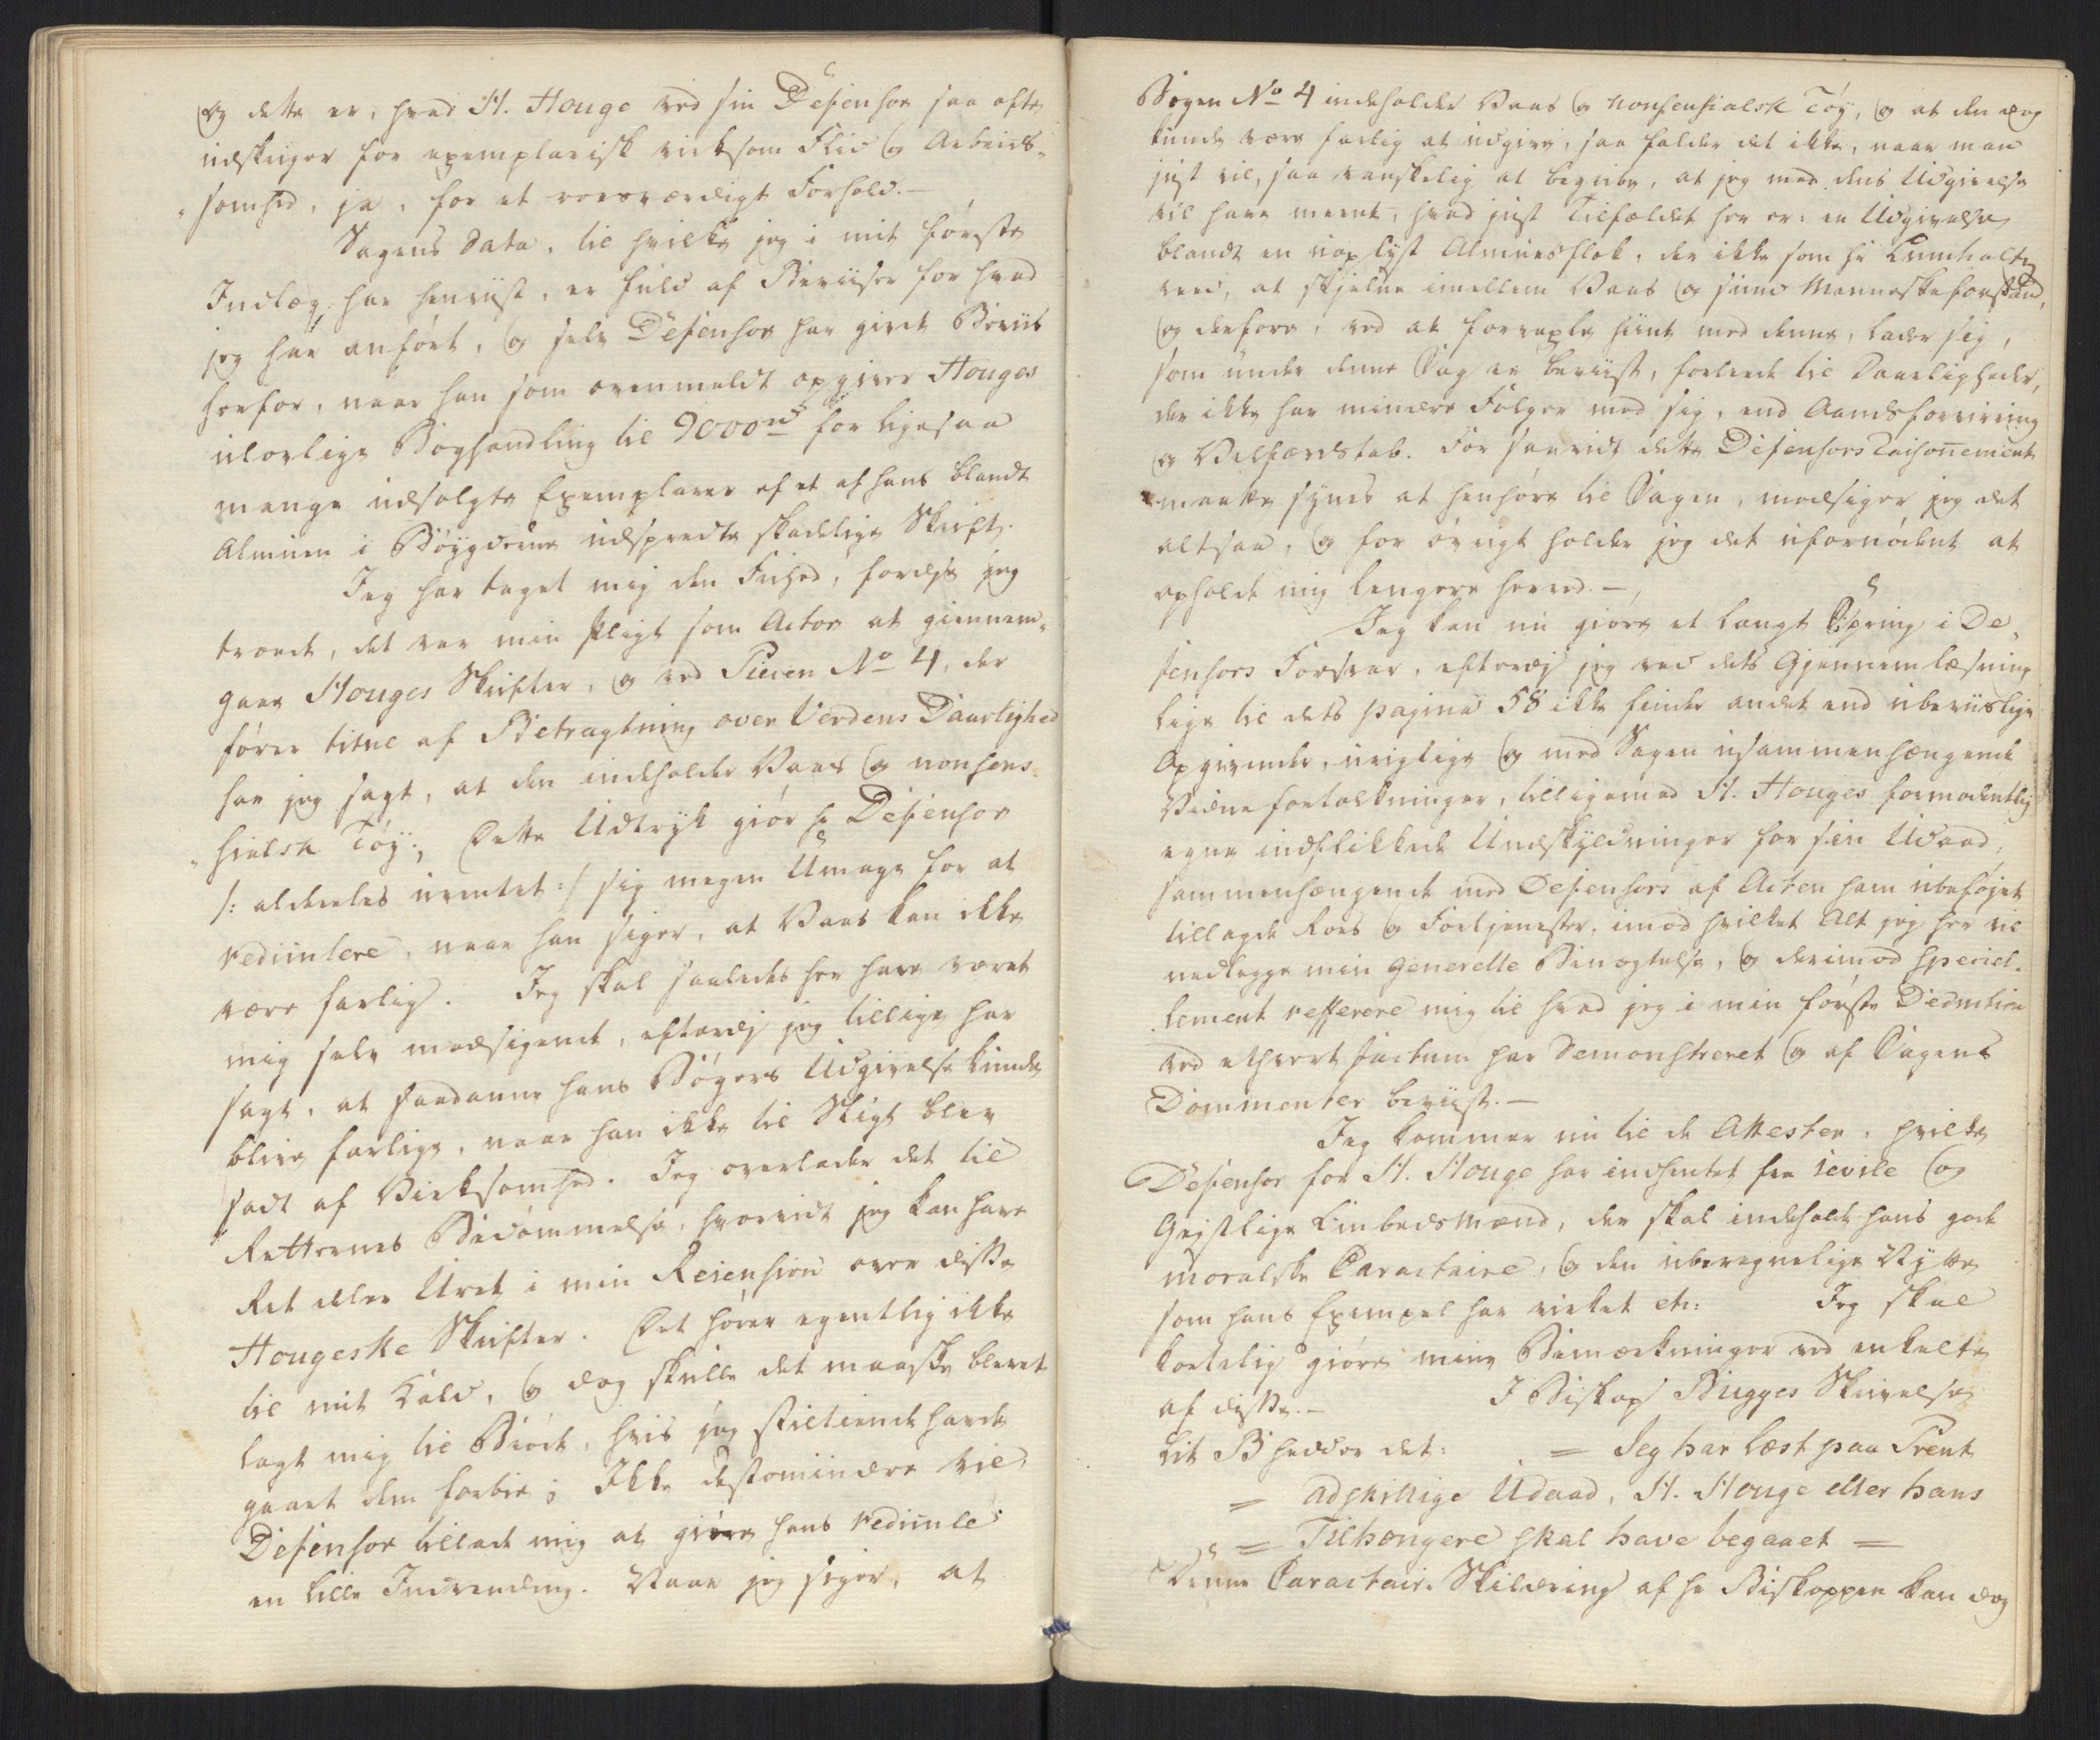 og dette er, hvad H. Houge ved sin Defensor saa ofte
udskriger for exemplarisk virksom Flid og Arbeids-
somhed, ja, for et roesværdigt Forhold.-
Sagens Data, til hvilke jeg i mit første
Indlæg har henviist, er fuld af Beviiser for hvad
jeg har anført, og selv Defensor har givet Beviis
herfor, naar han som ovenmeldt opgiver Houges
ulovlige Boghandling til 9000 rd for ligesaa
mange udsolgte Exemplarer af et af hans blandt
Almuen i Bøygderne udspredte skadelige Skrift.
Jeg har taget mig den Frihed, fordi jeg
troede, det var min Pligt som Actor at giennem-
gaae Houges Skrifter, og ved Piecen No 4, der
fører titel af Betragtning over Verdens Daarlighed
har jeg sagt, at den indeholder Vaas og nonsens-
hialsk Tøÿ; Dette Udtryk giør hr Defensor
/: aldeeles uventet :/ sig megen Umage for at
rediculere, naar han siger, at Vaas kan ikke
være farlig. Jeg skal saaledes her have været
mig selv modsigende, efterdi jeg tillige har
sagt, at saadanne hans Bøgers Udgivelse kunde
blive farlige, naar han ikke til Sligt blev
sadt af Virksomhed. Jeg overlader det til
Retternes Bedømmelse, hvorvidt jeg kan have
Ret eller Uret i min Recension over disse
Hougeske Skrifter. Det hører egentlig ikke
til mit Kald, og dog skulle det maaske blevet
lagt mig til Brøde, hvis jeg stiltiende havde
gaaet dem forbie; Ikke destomindre vil
Defensor tillade mig at giøre hans redicule
en lille Indvending. Naar jeg siger, at
Bogen No 4 indeholder Vaas og nonsensialsk Tøÿ, og at den dog
kunde være farlig at udgive, saa falder det ikke, naar man
just vil, saa vanskelig at begribe, at jeg med dens Udgivelse
vil have meent, hvad just Tilfældet her er: en Udgivelse
blandt en uoplyst Almues flok, der ikke som hr Lumholtz
veed, at skjelne imellem Vaas og sund Menneskeforstand,
og derfore, ved at forvexle hiint med denne, lader sig,
som under denne Sag er beviist, forlede til Daarligheder,
der ikke har mindre Følger med sig, end Aandsforvirring
og Velfærdstab. For saavidt dette Defensors Raisonement
maatte synes at henhøre til Sagen, modsiger jeg det
altsaa, og for øvrigt holder jeg det ufornødent at
opholde mig lengere herved.-
Jeg kan nu giøre et langt Spring i De-
fensors Forsvar, efterdi jeg ved dets Gjennemlæsning
lige til dets pagina 58 ikke finder andet end ubeviislige
Opgivender, urigtige og med Sagen usammenhængende
Vidne fortolkninger, tilligemed H. Houges formodentlig
egne indflikkede Undskyldninger for sin Udaad,
sammenhængende med Defensors af Acten ham ubeføjet
tillagde Roes og Fortjenester, imod hvilket Alt jeg her vil
nedlegge min generelle Benegtelse, og derimod speciel-
lement refferere mig til hvad jeg i min første Deduction
ved ethvert factum har demonstreret og af Sagens
Dommenter beviist.-
Jeg kommer nu til de Attester, hvilke
Defensor for H. Houge har indhentet fra sevile og
Gejstlige Embedsmænd, der skal indeholde hans gode
moralske Caractaire, og den uberegnelige Nytte
som hans Exempel har virket etc: Jeg skal
kortelig giøre mine Bemærkninger ved enkelte
af disse.- I Biskop Bugges Skrivelse
Lit B hedder det: = Jeg har læst paa Prent
= adskillige Udaad, H. Houge eller hans
= Tilhængere skal have begaaet =
Denne Caractair-Skildring af hr Biskoppen kan dog